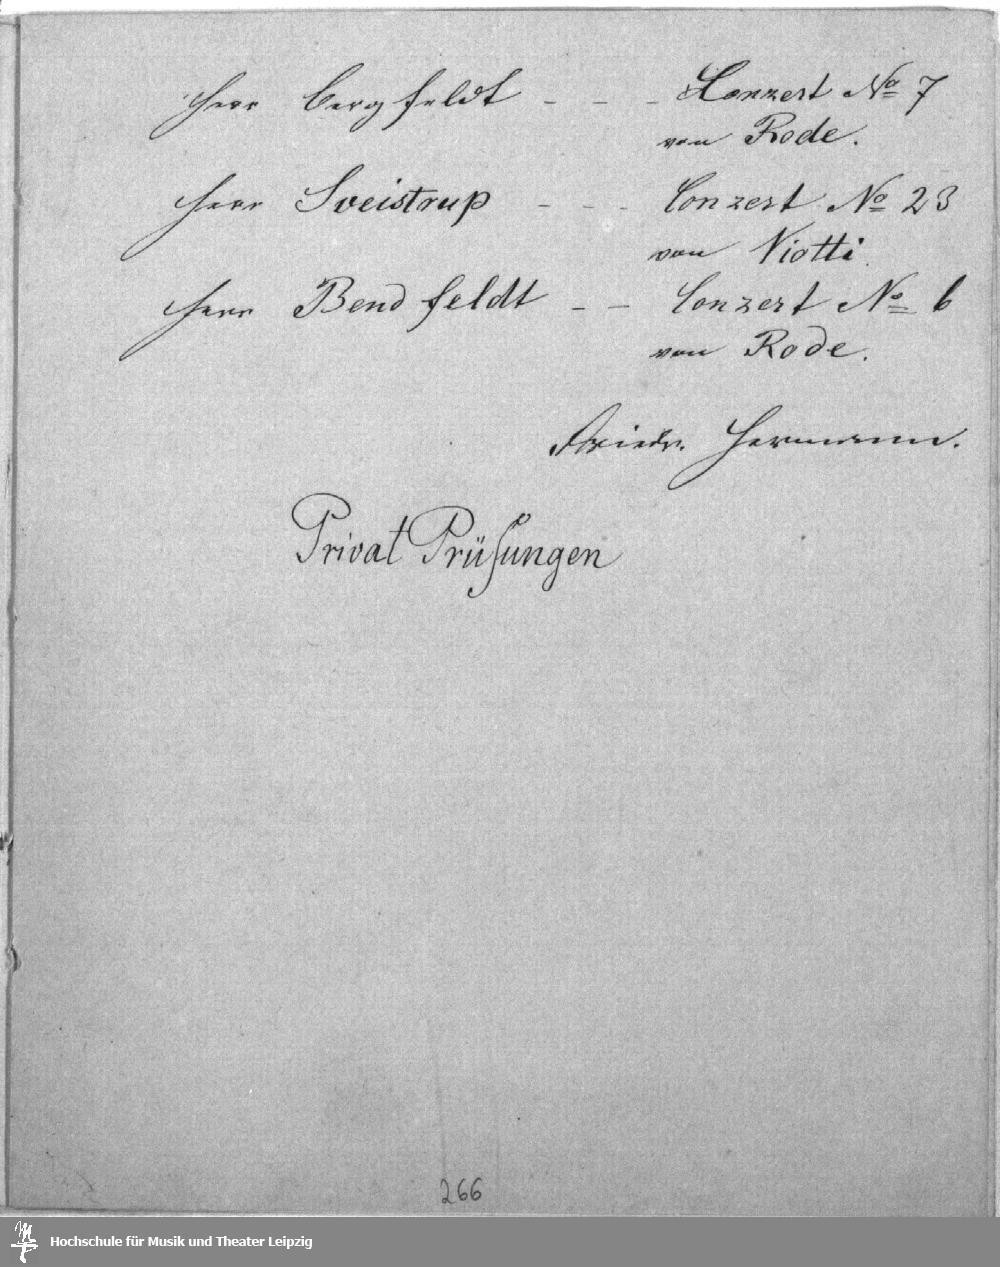 Herr Bergfeldt - - - Conzert No 7
von Rode.
Herr Sveistrup - - - Conzert No 23
von Viotti.
Herr Bendfeldt - - Conzert No 6
von Rode.
Friedr. Hermann.
Privat Prüfungen
266
Hochschule für Musik und Theater Leipzig